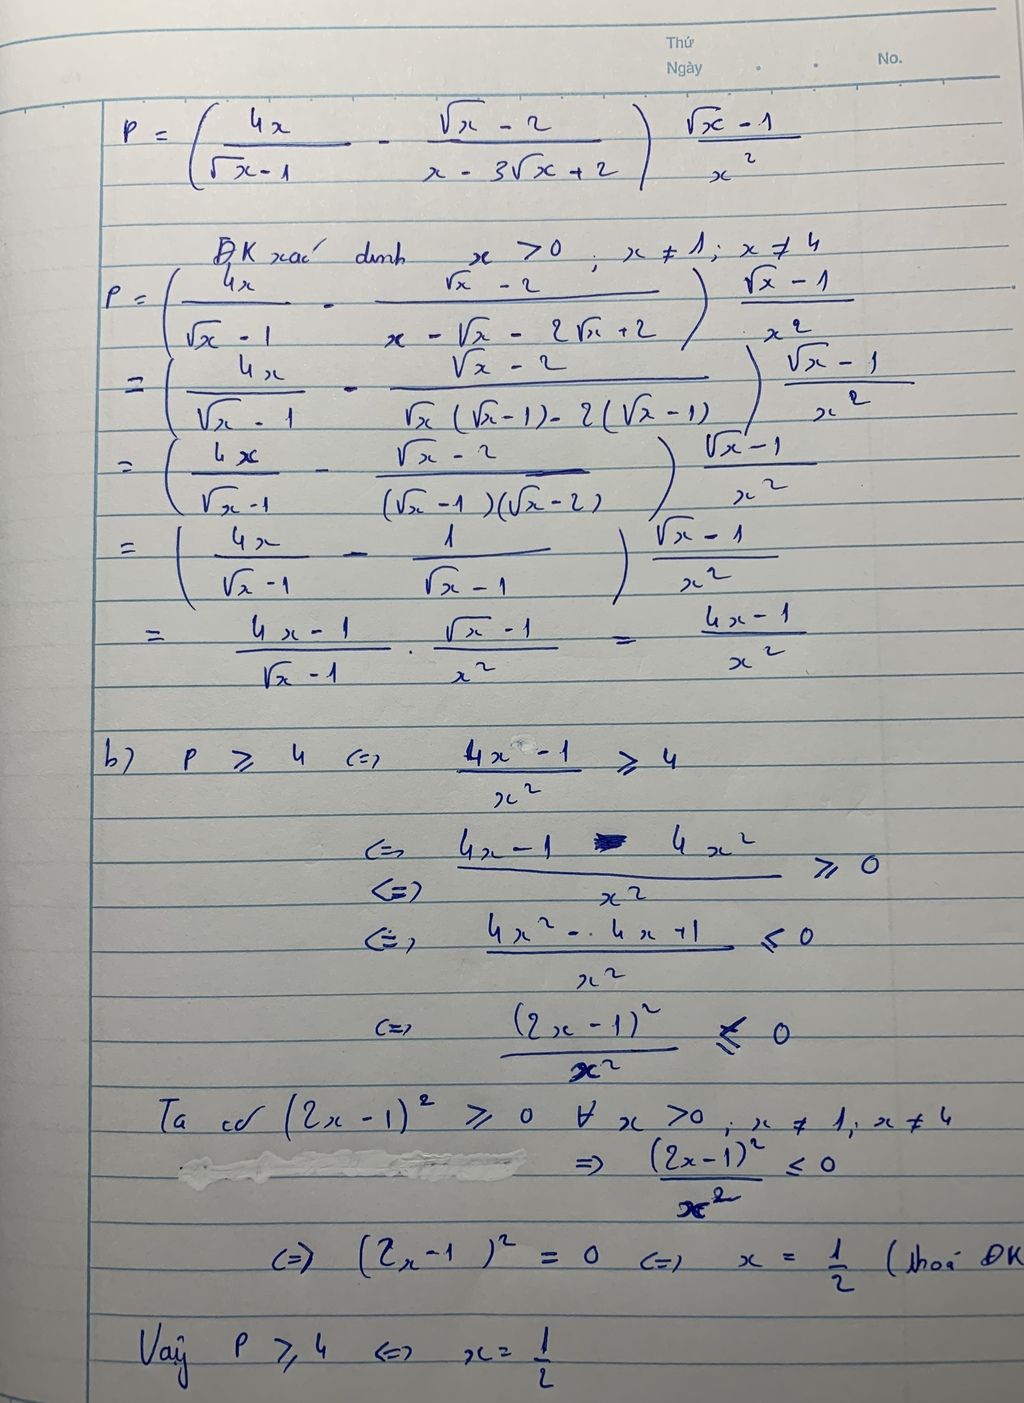 Thứ
Ngày . . No.
P = ( 4x / (√x - 1) - (√x - 2) / (x - 3√x + 2) ) (√x - 1) / x²
ĐK xác định x > 0 ; x ≠ 1; x ≠ 4
P = ( 4x / (√x - 1) - (√x - 2) / (x - √x - 2√x + 2) ) (√x - 1) / x²
= ( 4x / (√x - 1) - (√x - 2) / (√x (√x - 1) - 2(√x - 1)) ) (√x - 1) / x²
= ( 4x / (√x - 1) - (√x - 2) / ((√x - 1)(√x - 2)) ) (√x - 1) / x²
= ( 4x / (√x - 1) - 1 / (√x - 1) ) (√x - 1) / x²
= (4x - 1) / (√x - 1) . (√x - 1) / x² = (4x - 1) / x²
b) P ⩾ 4 <=> (4x - 1) / x² ⩾ 4
<=> (4x - 1 - 4x²) / x² ⩾ 0
<=>
<=> (4x² - 4x + 1) / x² ⩽ 0
<=> (2x - 1)² / x² ⩽ 0
Ta có (2x - 1)² ⩾ 0 ∀ x > 0 ; x ≠ 1; x ≠ 4
=> (2x - 1)² / x² ≤ 0
<=> (2x - 1)² = 0 <=> x = 1/2 (thoả ĐK
Vậy P ⩾ 4 <=> x = 1/2